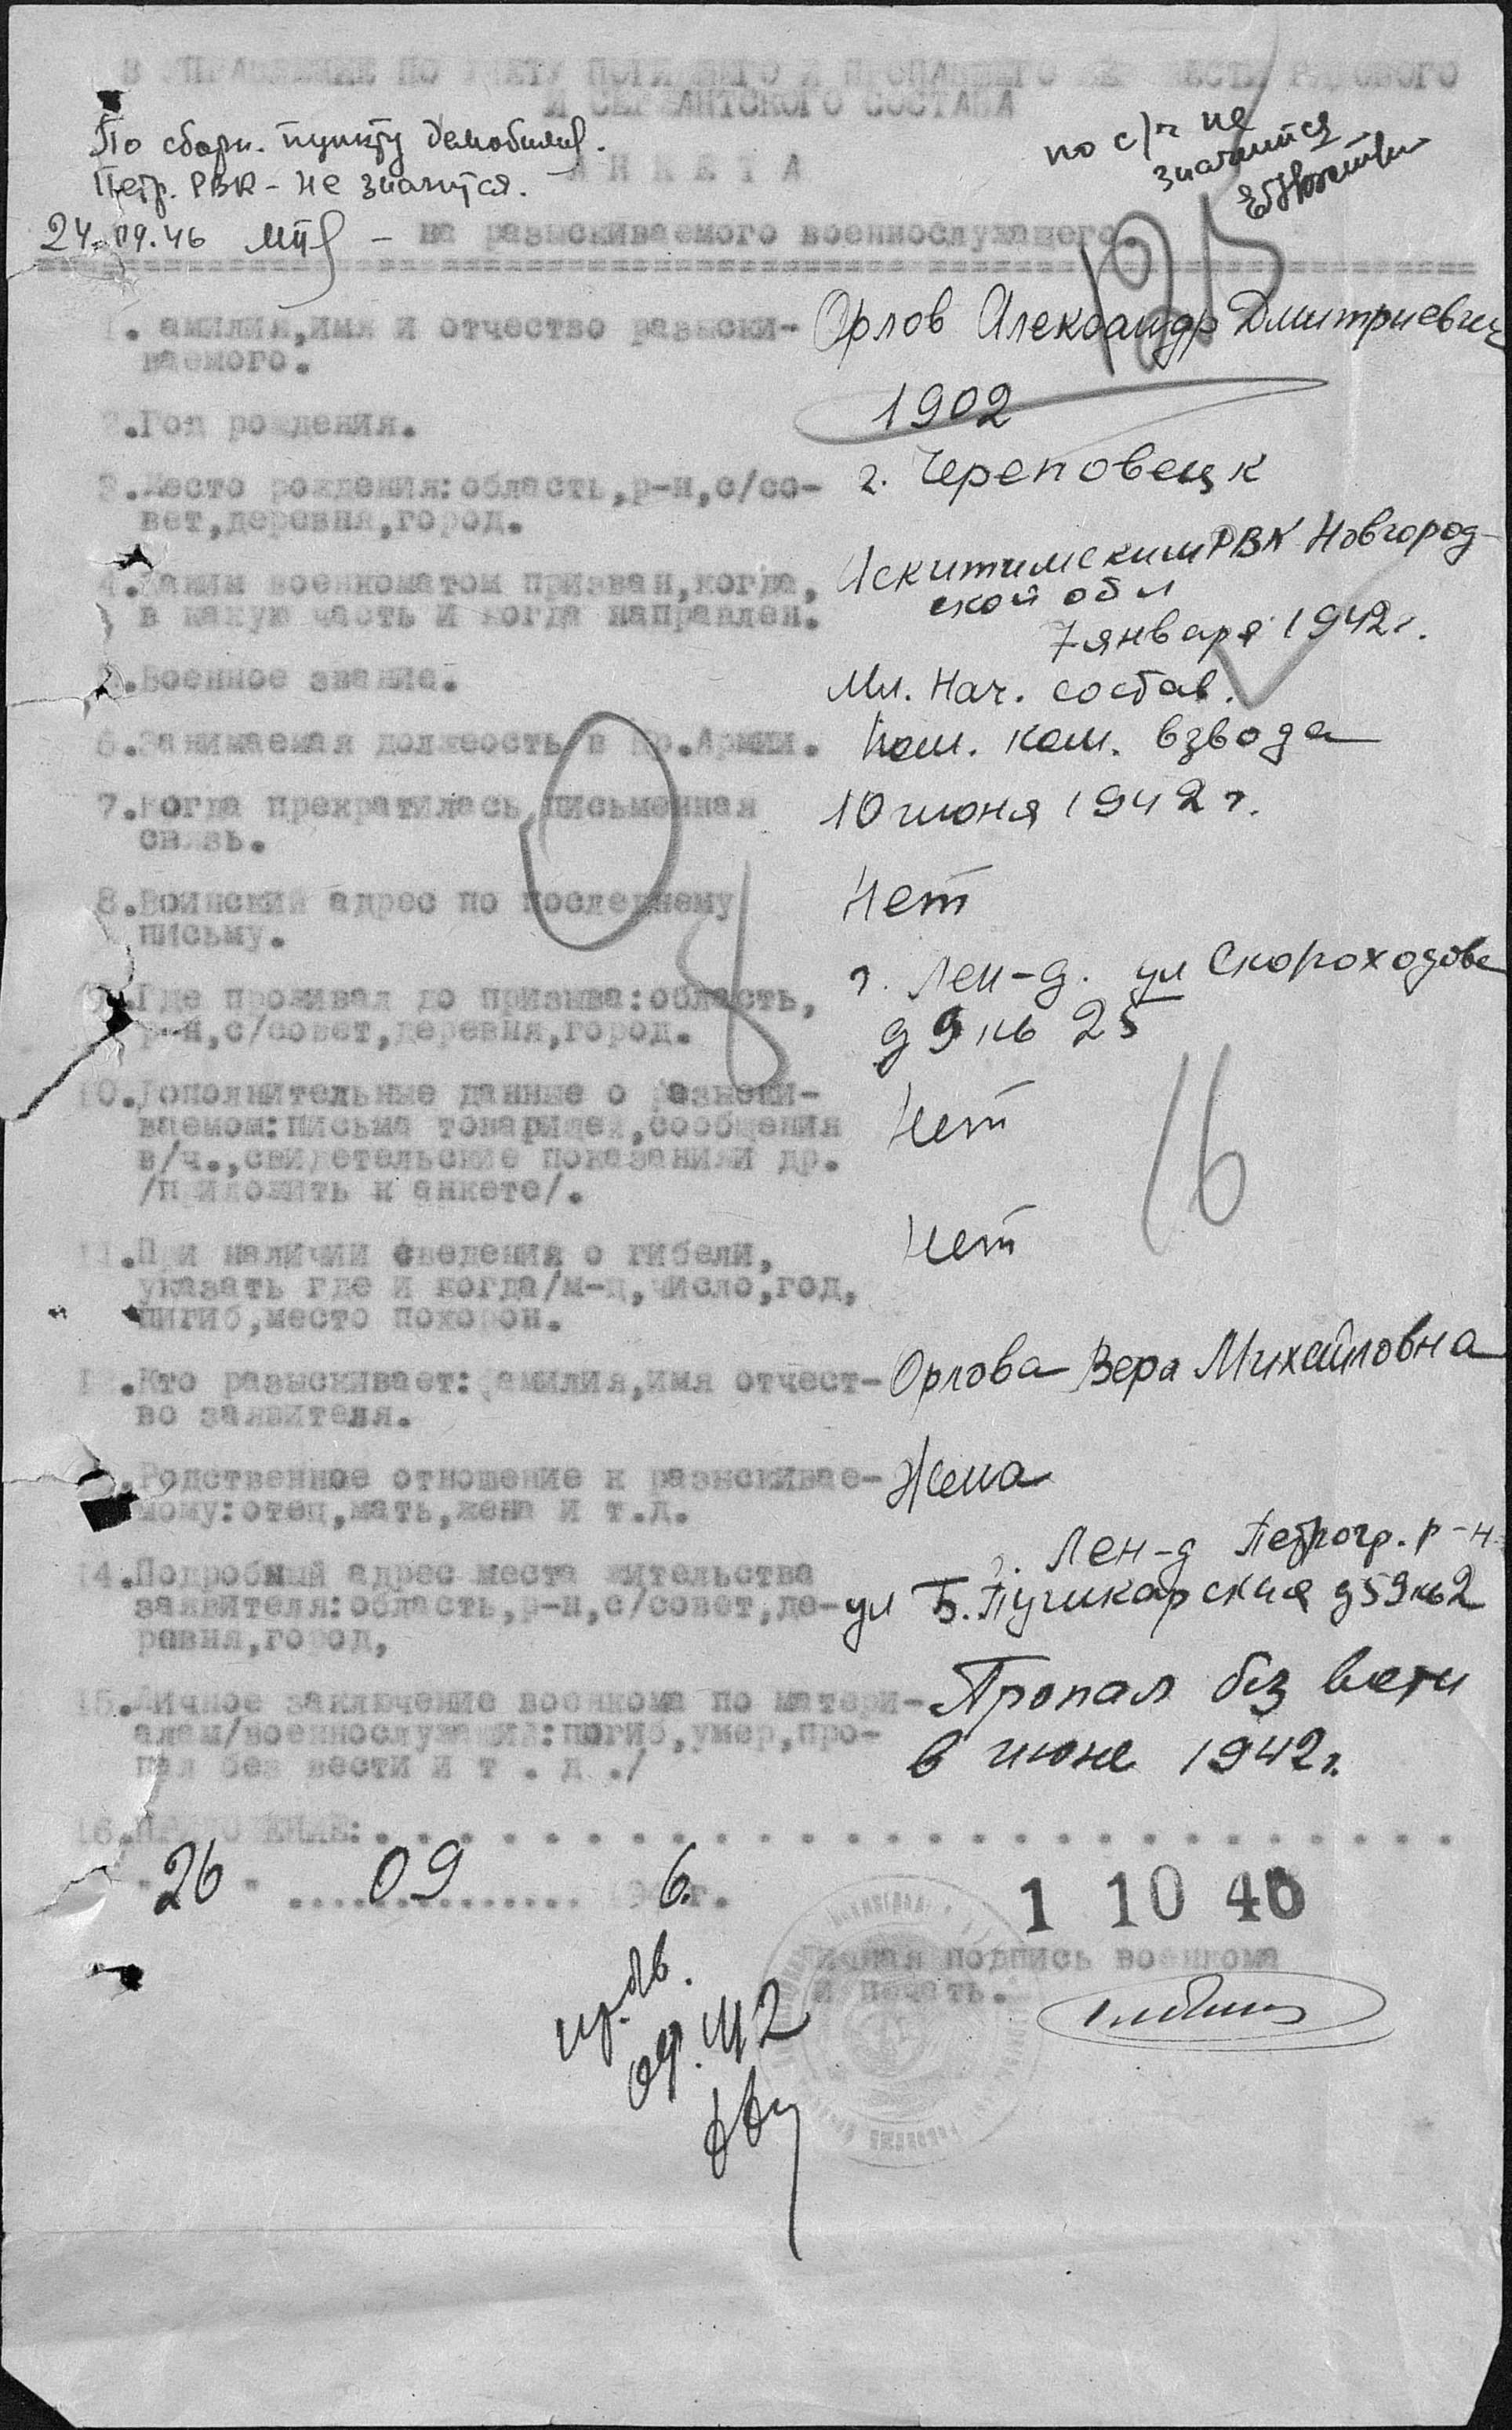 В УПРАВЛЕНИЕ ПО УЧЕТУ ПОГИБШЕГО И ПРОПАВШЕГО БЕЗ ВЕСТИ РЯДОВОГО
И СЕРЖАНТСКОГО СОСТАВА
По сборн. пункту демобилиз.
по с/ч не
значится
АНКЕТА
Петр. РВК - не значится.
24.09.46
на разыскиваемого военнослужащего.
1. Фамилия, имя и отчество разыски-
ваемого.
Орлов Александр Дмитриевич
2. Год рождения.
1902
3. Место рождения: область, р-н, с/со-
вет, деревня, город.
г. Череповецк
4. Каким военкоматом призван, когда,
в какую часть и когда направлен.
Искитимским РВК Новгород-
ской обл
7 января 1942 г.
5. Военное звание.
Мл. Нач. состав.
6. Занимаемая должность в Кр. Армии.
Пом. ком. взвода
7. Когда прекратилась письменная
связь.
10 июня 1942 г.
8. Воинский адрес по последнему
письму.
Нет
9. Где проживал до призыва: область,
р-н, с/совет, деревня, город.
г. Лен-д. ул Скороходова
д 9 кв 25
10. Дополнительные данные о разыски-
ваемом: письма товарищей, сообщения
в/ч., свидетельские показания и др.
/приложить к анкете/.
Нет
16
11. При наличии сведения о гибели,
указать где и когда/м-ц, число, год,
пигиб, место похорон.
Нет
12. Кто разыскивает: фамилия, имя отчест-
во заявителя.
Орлова Вера Михайловна
13. Родственное отношение к разыскивае-
мому: отец, мать, жена и т.д.
Жена
14. Подробный адрес места жительства
заявителя: область, р-н, с/совет, де-
ревня, город,
г. Лен-д Петрогр. р-н
ул Б. Пушкарская д 59 кв 2
15. Личное заключение военкома по матери-
алам/военнослужащий: погиб, умер, про-
пал без вести и т. д./
Пропал без вести
в июне 1942 г.
16. ПРИЛОЖЕНИЕ:
"26" 09 1946 г.
1 10 46
Личная подпись военкома
и печать.